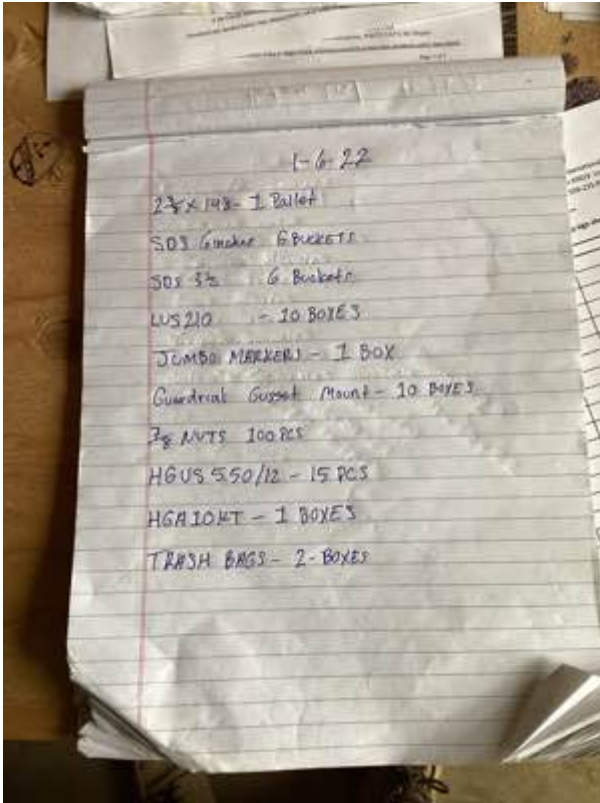 1-6-22
2 3/8 x 148 - 1 Pallet
SDS 6 inches 6 BUCKETS
SDS 3½ 6 Buckets
LUS210 - 10 BOXES
JUMBO MARKERS - 1 BOX
Guardrial Gusset Mount - 10 BOXES
7/8 NUTS 100 PCS
HGUS 5.50/12 - 15 PCS
HGA10KT - 1 BOXES
TRASH BAGS - 2 - BOXES